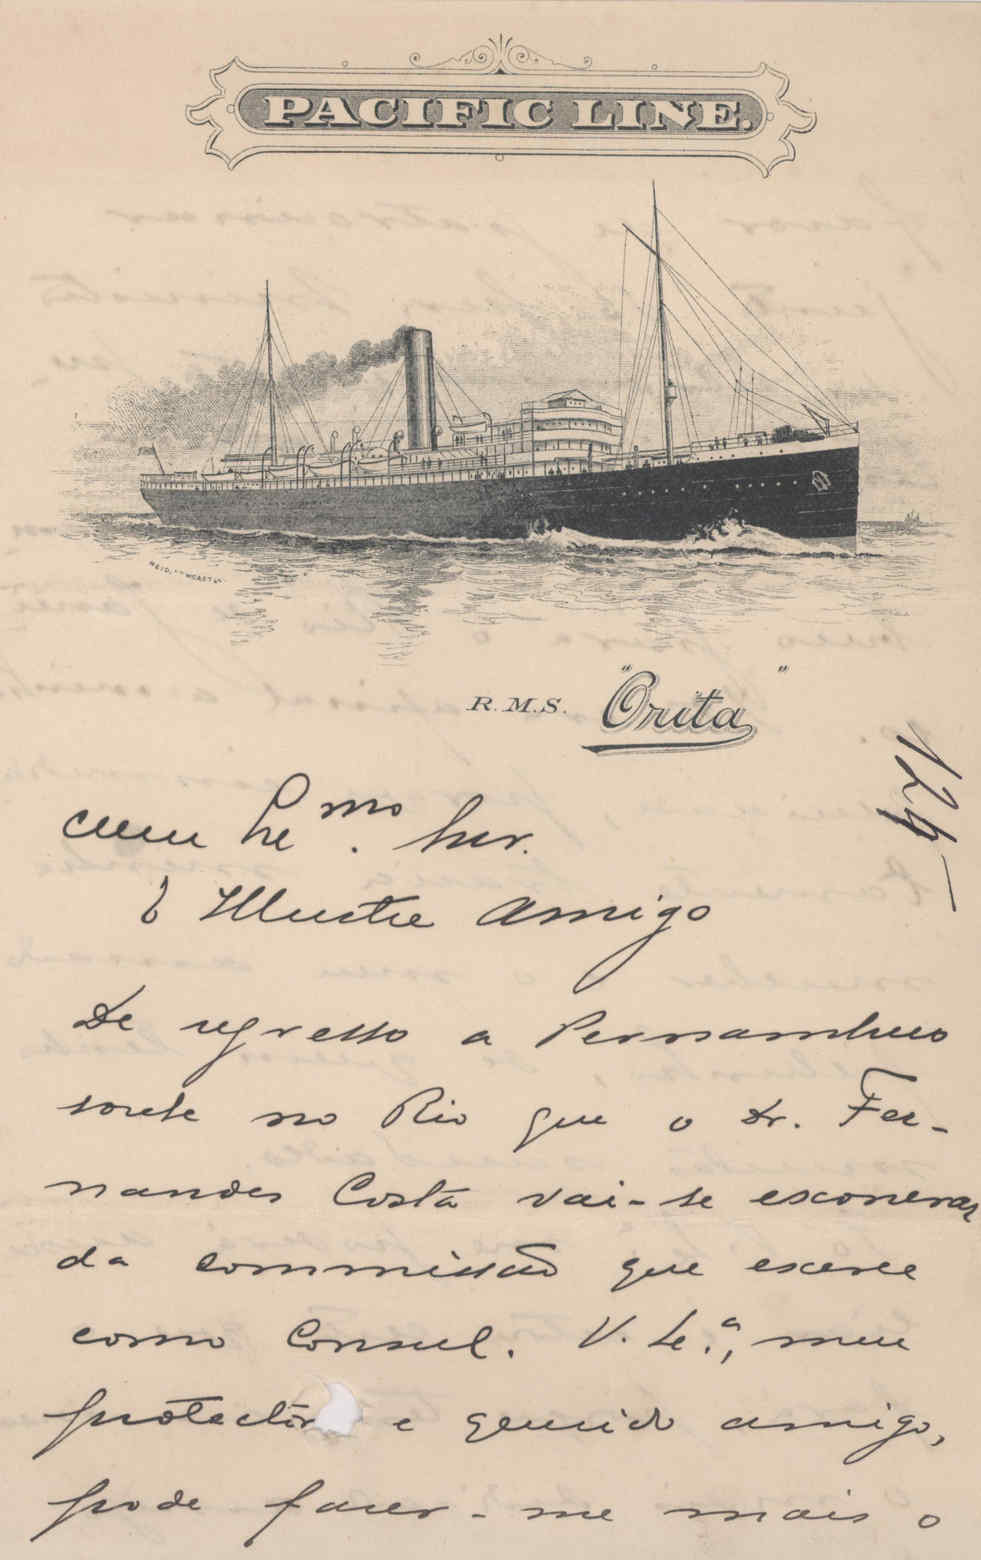 PACIFIC LINE.
R.M.S. "Orita"
124
Meu Ex.mo Snr.
e Illustre Amigo
De regresso a Pernambuco
soube no Rio que o Dr. Fer-
nandes Costa vai-se exonerar
da commissão que exerce
como Consul. V. Ex.a, meu
protector e querido amigo,
pode fazer-me mais o